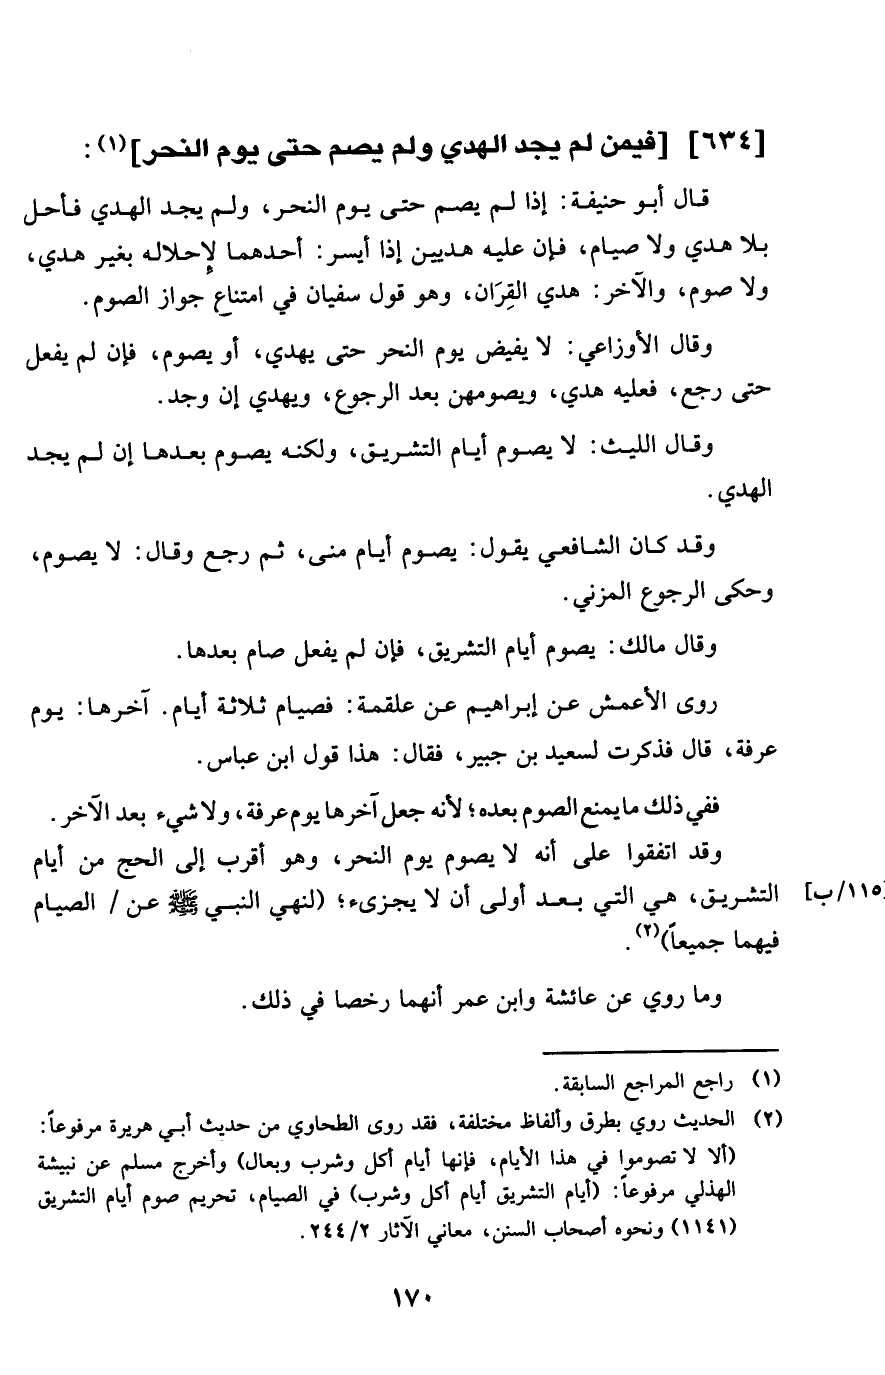 [٦٣٤] [فيمن لم يجد الهدي ولم يصم حتى يوم النحر](١):
قال أبو حنيفة: إذا لم يصم حتى يوم النحر، ولم يجد الهدي فأحل
بلا هدي ولا صيام، فإن عليه هديين إذا أيسر: أحدهما لإحلاله بغير هدي،
ولا صوم، والآخر: هدي القِرَان، وهو قول سفيان في امتناع جواز الصوم.
وقال الأوزاعي: لا يفيض يوم النحر حتى يهدي، أو يصوم، فإن لم يفعل
حتى رجع، فعليه هدي، ويصومهن بعد الرجوع، ويهدي إن وجد.
وقال الليث: لا يصوم أيام التشريق، ولكنه يصوم بعدها إن لم يجد
الهدي.
وقد كان الشافعي يقول: يصوم أيام منى، ثم رجع وقال: لا يصوم،
وحكى الرجوع المزني.
وقال مالك: يصوم أيام التشريق، فإن لم يفعل صام بعدها.
روى الأعمش عن إبراهيم عن علقمة: فصيام ثلاثة أيام. آخرها: يوم
عرفة، قال فذكرت لسعيد بن جبير، فقال: هذا قول ابن عباس.
ففي ذلك ما يمنع الصوم بعده؛ لأنه جعل آخرها يوم عرفة، ولا شيء بعد الآخر.
وقد اتفقوا على أنه لا يصوم يوم النحر، وهو أقرب إلى الحج من أيام
[١١٥/ب] التشريق، هي التي بعد أولى أن لا يجزىء؛ (لنهي النبي ﷺ عن / الصيام
فيهما جميعاً)(٢).
وما روي عن عائشة وابن عمر أنهما رخصا في ذلك.
(١) راجع المراجع السابقة.
(٢) الحديث روي بطرق وألفاظ مختلفة، فقد روى الطحاوي من حديث أبي هريرة مرفوعاً:
(ألا لا تصوموا في هذا الأيام، فإنها أيام أكل وشرب وبعال) وأخرج مسلم عن نبيشة
الهذلي مرفوعاً: (أيام التشريق أيام أكل وشرب) في الصيام، تحريم صوم أيام التشريق
(١١٤١) ونحوه أصحاب السنن، معاني الآثار ٢/٢٤٤.
١٧٠